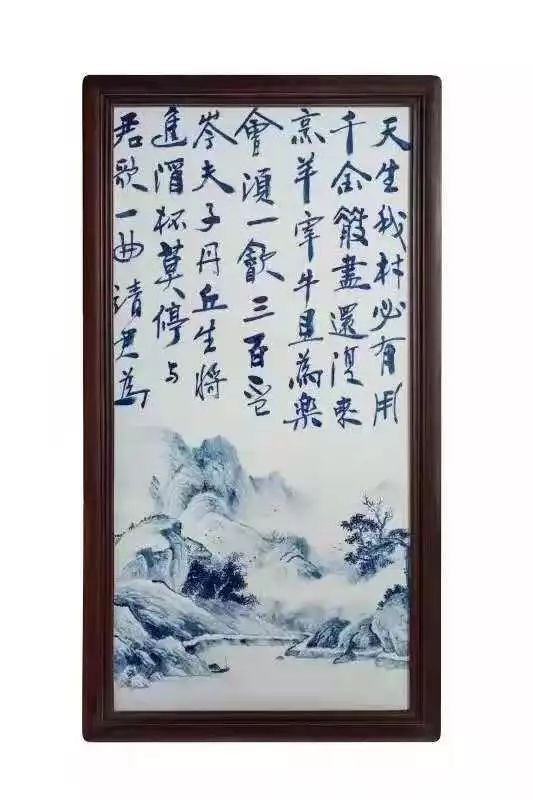 天生我材必有用
千金散盡還復來
烹羊宰牛且為樂
會須一飲三百杯
岑夫子丹丘生將
進酒杯莫停与
君歌一曲請君為